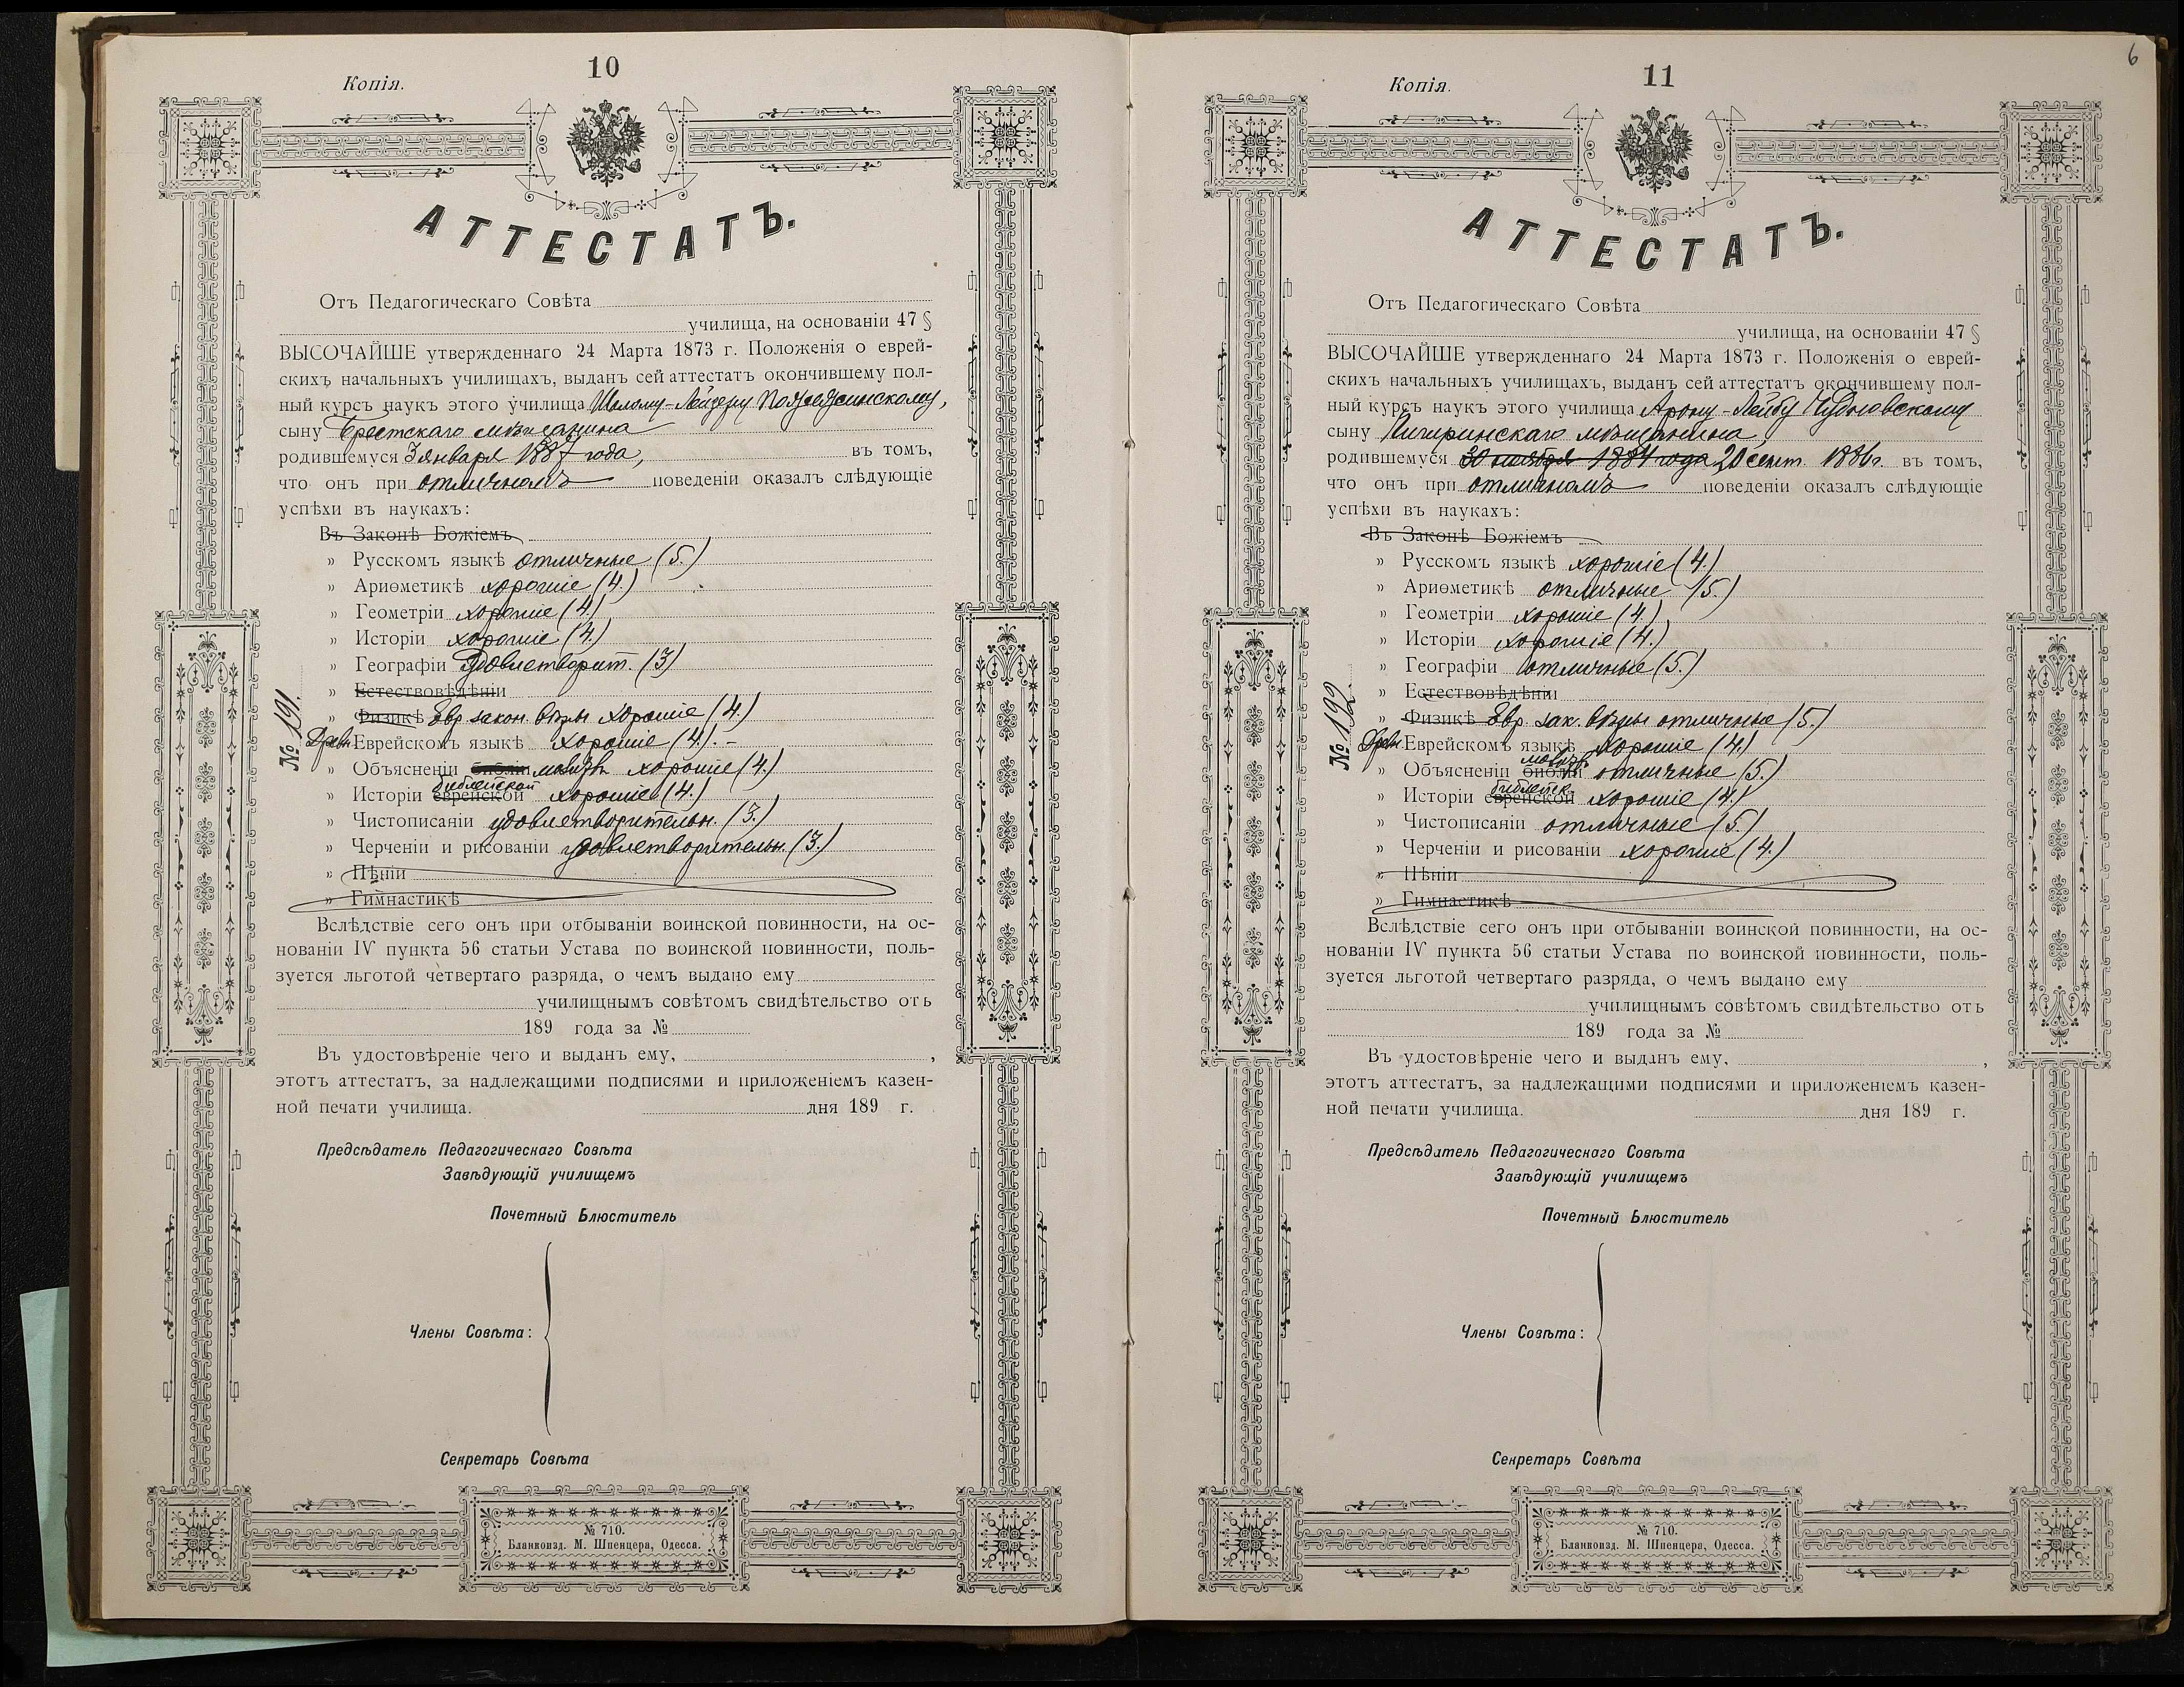 10
Копія.
АТТЕСТАТЪ.
Отъ Педагогическаго Совѣта
училища, на основаніи 47 §
ВЫСОЧАЙШЕ утвержденнаго 24 Марта 1873 г. Положенія о еврей-
скихъ начальныхъ училищахъ, выданъ сей аттестатъ окончившему пол-
ный курсъ наукъ этого училища Шолому-Лейзеру
сыну Брестскаго мѣщанина
родившемуся 3 января 1887 года, въ томъ,
что онъ при отличномъ поведеніи оказалъ слѣдующіе
успѣхи въ наукахъ:
Въ Законѣ Божіемъ
» Русскомъ языкѣ отличные (5.)
» Ариѳметикѣ хорошіе (4.)
» Геометріи хорошіе (4)
» Исторіи хорошіе (4.)
» Географіи удовлетворит. (3)
» Естествовѣдѣніи
» Физикѣ Евр. закон. вѣры хорошіе (4.)
Древн. Еврейскомъ языкѣ хорошіе (4). -
» Объясненіи библіи молитвъ хорошіе (4.)
» Исторіи еврейской библейской хорошіе (4.)
» Чистописаніи удовлетворительн. (3.)
» Черченіи и рисованіи удовлетворительн. (3.)
» Пѣніи
» Гимнастикѣ
№ 191.
Вслѣдствіе сего онъ при отбываніи воинской повинности, на ос-
нованіи IV пункта 56 статьи Устава по воинской повинности, поль-
зуется льготой четвертаго разряда, о чемъ выдано ему
училищнымъ совѣтомъ свидѣтельство отъ
189 года за №
Въ удостовѣреніе чего и выданъ ему, ,
этотъ аттестатъ, за надлежащими подписями и приложеніемъ казен-
ной печати училища. дня 189 г.
Предсѣдатель Педагогическаго Совѣта
Завѣдующій училищемъ
Почетный Блюститель
Члены Совѣта:
Секретарь Совѣта
№ 710.
Бланкоизд. М. Шпенцера, Одесса.
6
11
Копія.
АТТЕСТАТЪ.
Отъ Педагогическаго Совѣта
училища, на основаніи 47 §
ВЫСОЧАЙШЕ утвержденнаго 24 Марта 1873 г. Положенія о еврей-
скихъ начальныхъ училищахъ, выданъ сей аттестатъ окончившему пол-
ный курсъ наукъ этого училища Арону-Лейбу Чудновскому
сыну Чигиринскаго мѣщанина
родившемуся 30 ноября 1884 года 20 сент. 1886 г. въ томъ,
что онъ при отличномъ поведеніи оказалъ слѣдующіе
успѣхи въ наукахъ:
Въ Законѣ Божіемъ
» Русскомъ языкѣ хорошіе (4.)
» Ариѳметикѣ отличные (5.)
» Геометріи хорошіе (4.)
» Исторіи хорошіе (4.)
» Географіи отличные (5.)
» Естествовѣдѣніи
» Физикѣ Евр. зак. вѣры отличные (5.)
Древн. Еврейскомъ языкѣ хорошіе (4.)
» Объясненіи библіи молитвъ отличные (5.)
» Исторіи еврейской библейск. хорошіе (4.)
» Чистописаніи отличные (5.)
» Черченіи и рисованіи хорошіе (4.)
» Пѣніи
» Гимнастикѣ
№ 192
Вслѣдствіе сего онъ при отбываніи воинской повинности, на ос-
нованіи IV пункта 56 статьи Устава по воинской повинности, поль-
зуется льготой четвертаго разряда, о чемъ выдано ему
училищнымъ совѣтомъ свидѣтельство отъ
189 года за №
Въ удостовѣреніе чего и выданъ ему, ,
этотъ аттестатъ, за надлежащими подписями и приложеніемъ казен-
ной печати училища. дня 189 г.
Предсѣдатель Педагогическаго Совѣта
Завѣдующій училищемъ
Почетный Блюститель
Члены Совѣта:
Секретарь Совѣта
№ 710.
Бланкоизд. М. Шпенцера, Одесса.